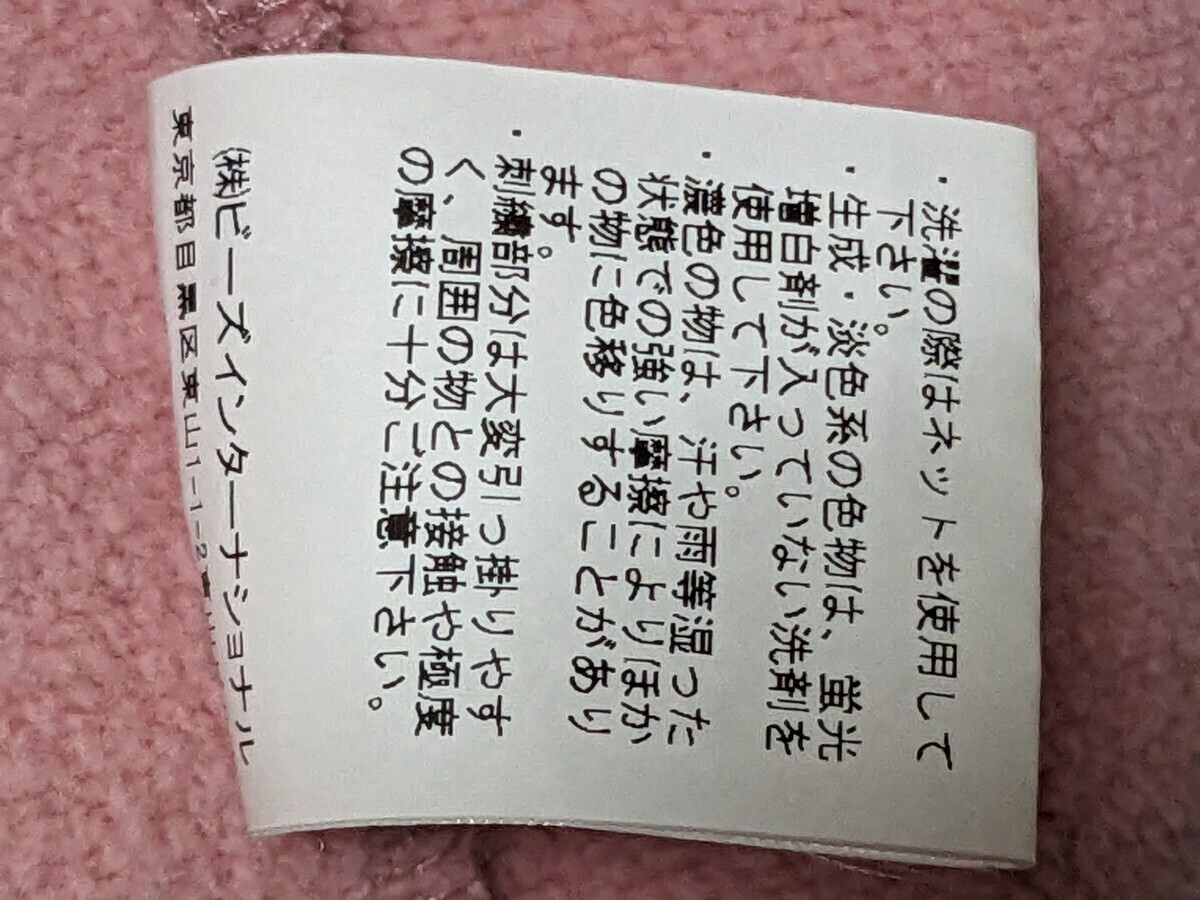 ・洗濯の際はネットを使用して
下さい。
・生成・淡色系の色物は、蛍光
増白剤が入っていない洗剤を
使用して下さい。
・濃色の物は、汗や雨等湿った
状態での強い摩擦によりほか
の物に色移りすることがあり
ます。
・刺繍部分は大変引っ掛りやす
く、周囲の物との接触や極度
の摩擦に十分ご注意下さい。
(株)ビーズインターナショナル
東京都目黒区東山1-1-2